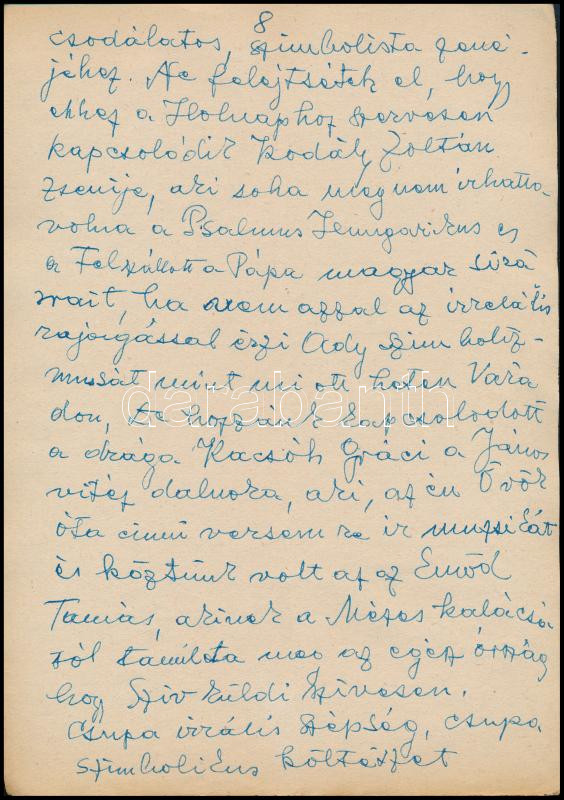 8
csodálatos, szimbolista zené-
jéhez. Ne felejtsétek el, hogy
ehhez a Holnaphoz szervesen
kapcsolódik Kodály Zoltán
zsenije, aki soha meg nem írhatta
volna a Psalmus Hungaricus és
a Felszállott a Pápa magyar sirá
mait, ha nem azzal az irreális
rajongással érzi Ady szimboliz-
musát mint mi ott heten Vára
don, de hozzánk kapcsolodott
a drága Kacsóh Gráci a János
vitéz dalnoka, aki, az én Övök
óta cimü versemre ir muzsikát
és köztünk volt az az Emőd
Tamás, akinek a Mézes kalácsá
ból tanulta meg az egész ország
hogy Szív küldi Szívesen.
Csupa irrális szépség, csupa
szimbolikus költészet
darabanth